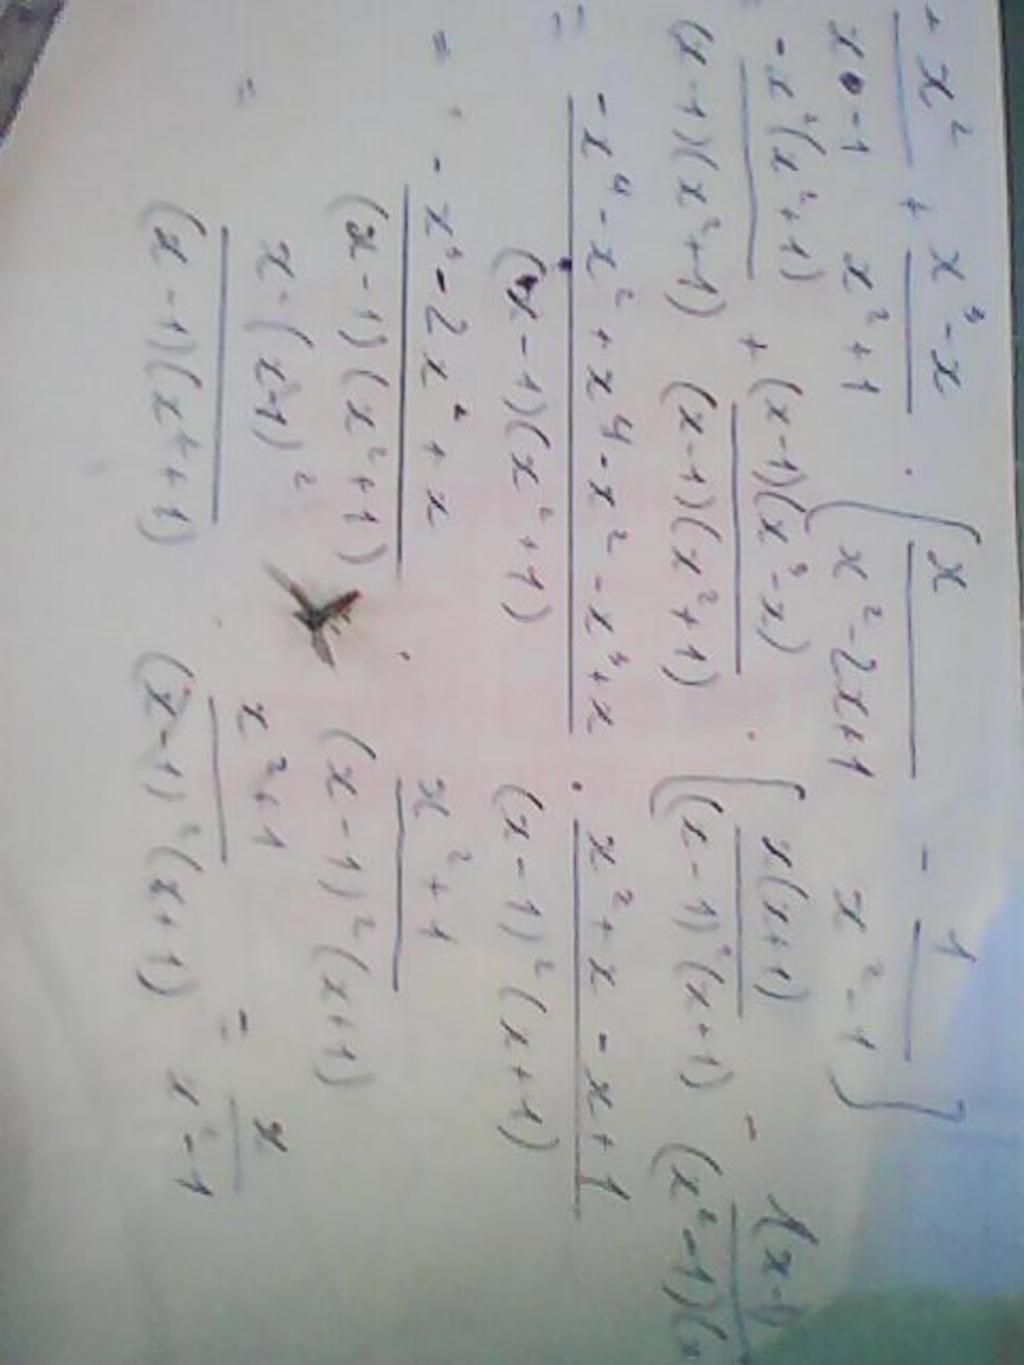 + x² / x-1 + x³-x / x²+1 · [ x / x²-2x+1 - 1 / x²-1 ]
= -x²(x²+1) / (x-1)(x²+1) + (x-1)(x³-x) / (x-1)(x²+1) · [ x(x+1) / (x-1)²(x+1) - 1(x-1) / (x²-1)(x
= -x⁴-x²+x⁴-x²-x³+x / (x-1)(x²+1) · x²+x-x+1 / (x-1)²(x+1)
= -x³-2x²+x / (x-1)(x²+1) · x²+1 / (x-1)²(x+1)
= x-(x-1)² / (x-1)(x²+1) · x²+1 / (x-1)²(x+1) = x / x²-1